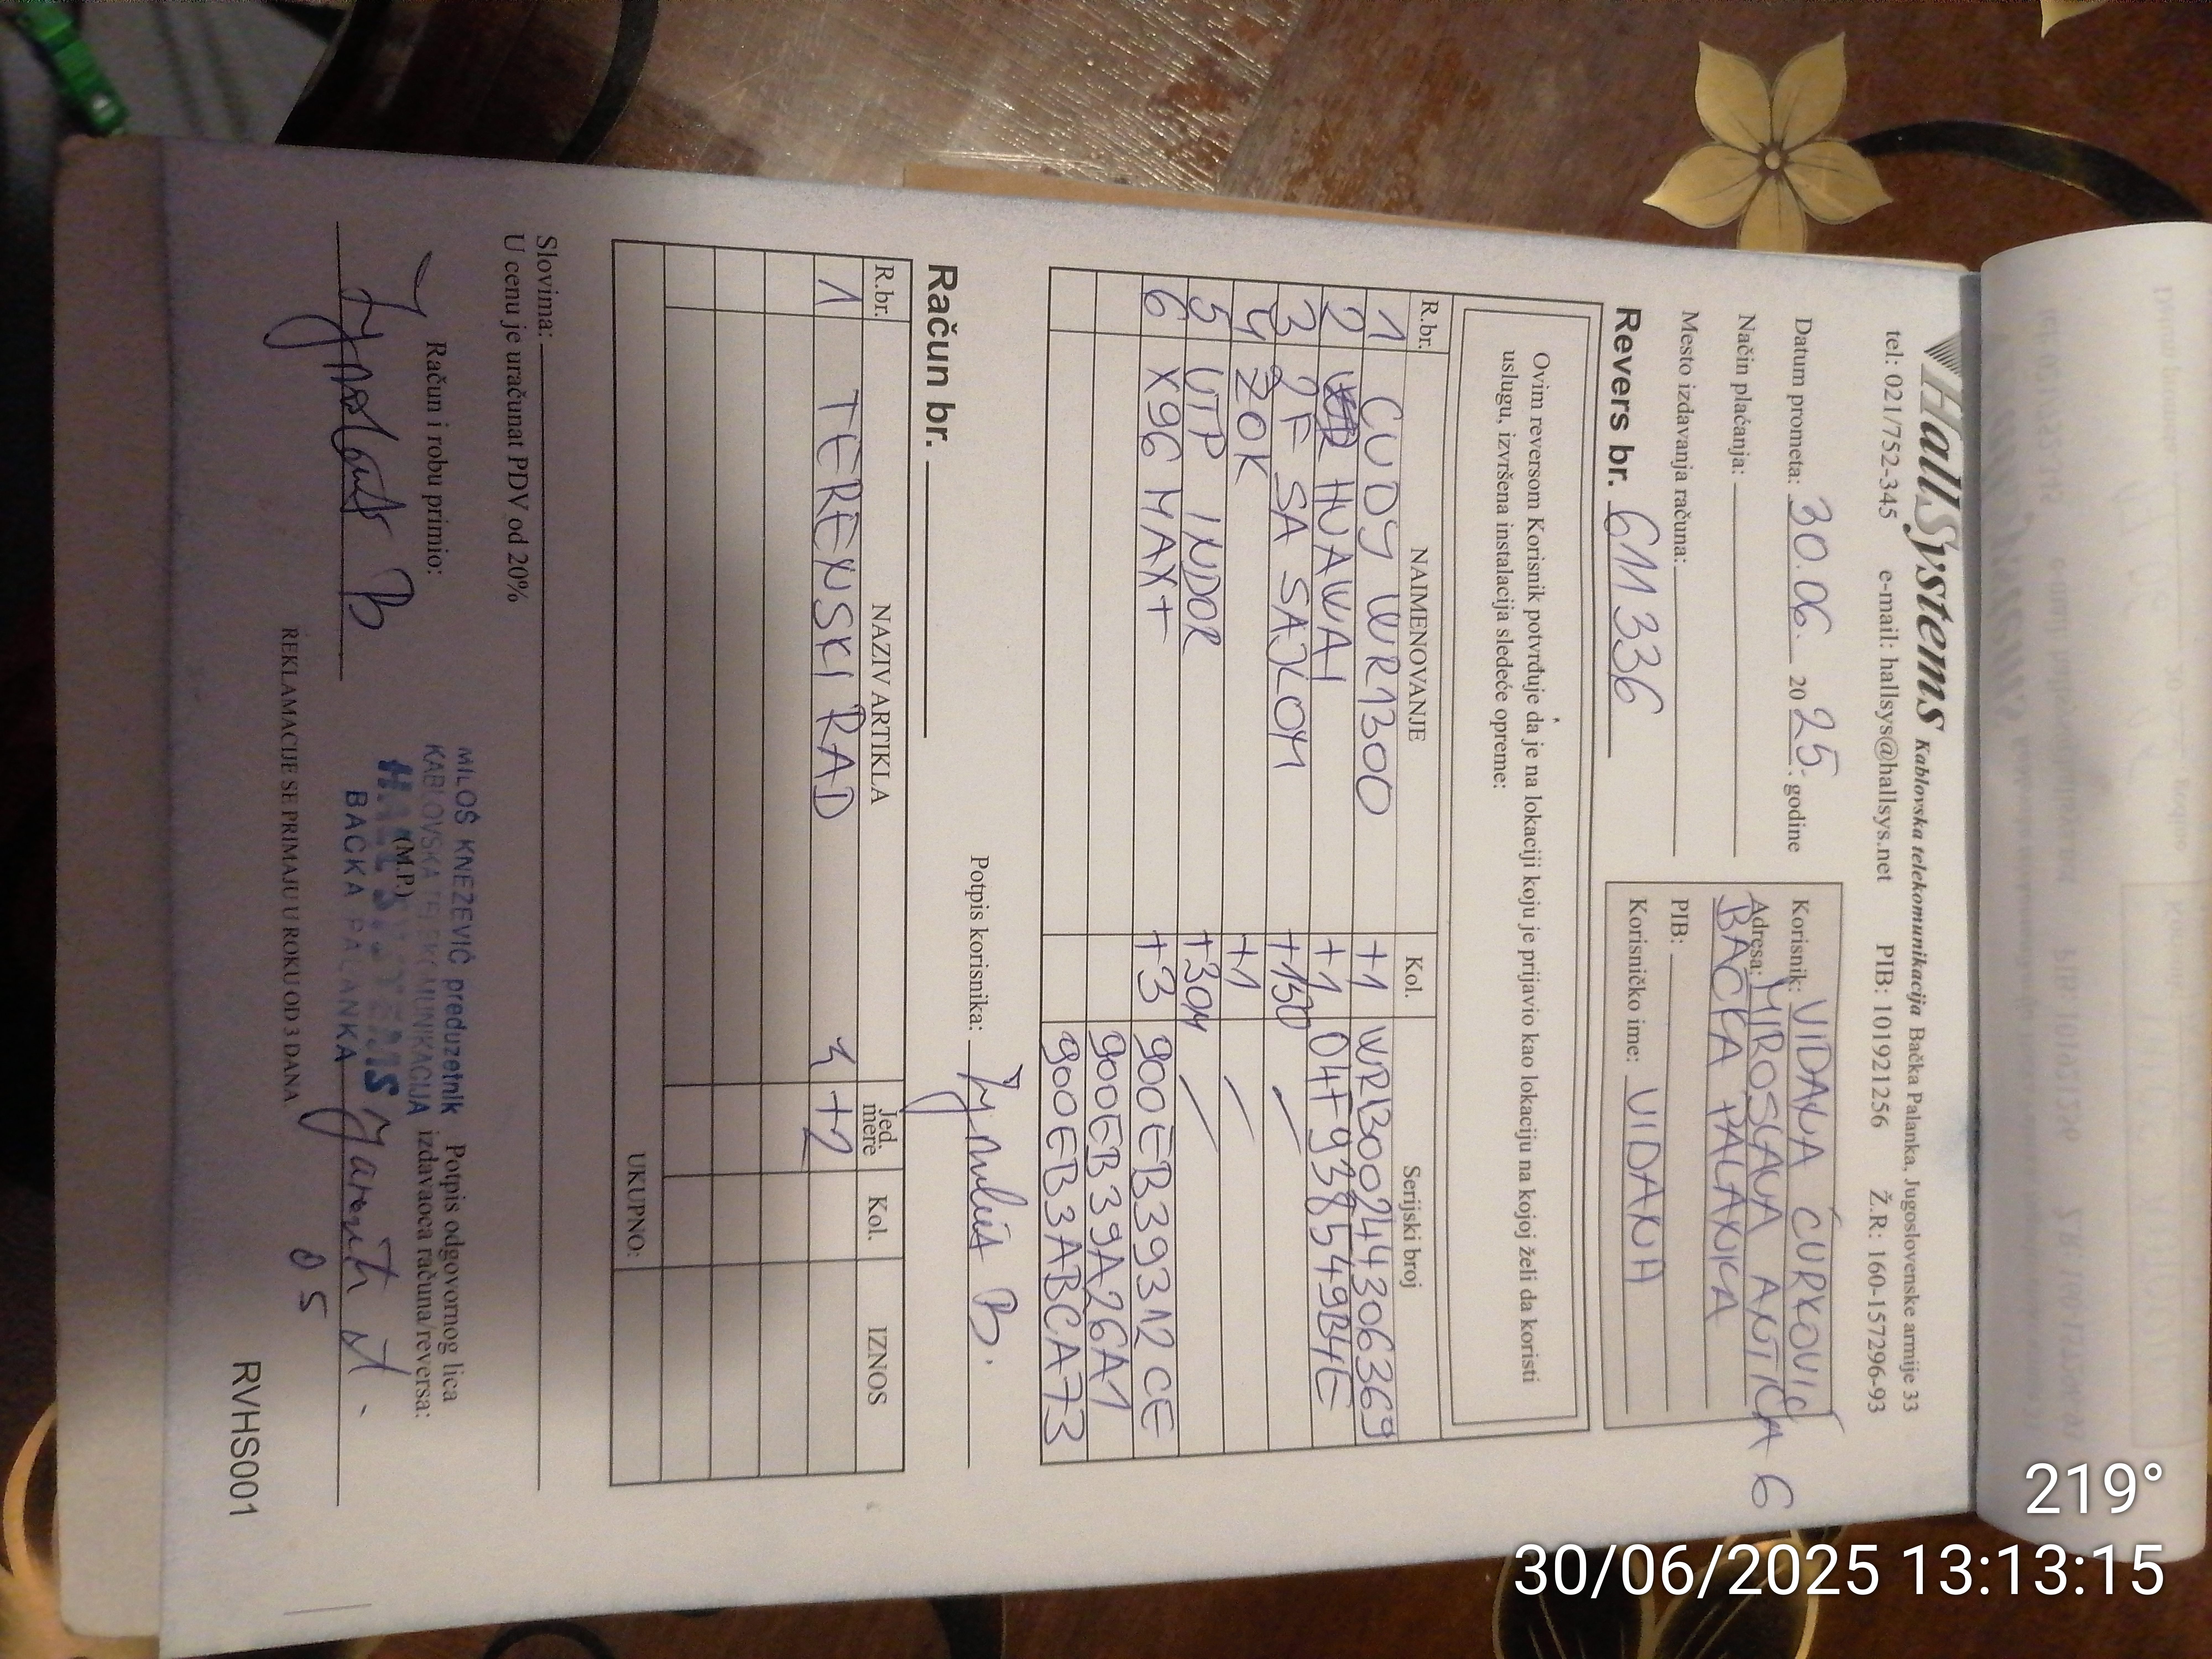 HallSystems Kablovska telekomunikacija Bačka Palanka, Jugoslovenske armije 33
tel: 021/752-345 e-mail: hallsys@hallsys.net PIB: 101921256 Ž.R: 160-157296-93
Datum prometa: 30.06. 2025. godine
Način plaćanja:
Mesto izdavanja računa:
Revers br. 611336
Korisnik: VIDANA ĆURKOVIĆ
Adresa: MIROSLAVA ANTIĆA 6
BAČKA PALANKA
PIB:
Korisničko ime: VIDANA
Ovim reversom Korisnik potvrđuje da je na lokaciji koju je prijavio kao lokaciju na kojoj želi da koristi
uslugu, izvršena instalacija sledeće opreme:
R.br. NAIMENOVANJE Kol. Serijski broj
1 CUDY WR1300 +1 WR1300244306369
2 HUAWAI +1 04F938549B4E
3 2F SA SAJLOM +150
4 ZOK +1
5 UTP INDOR +30M
6 X96 MAX+ +3 900EB39312CE
900EB39A26A1
900EB3ABCA73
Potpis korisnika:
Račun br.
R.br. NAZIV ARTIKLA Jed. mere Kol. IZNOS
1 TERENSKI RAD +2
UKUPNO:
Slovima:
U cenu je uračunat PDV od 20%
Račun i robu primio:
MILOŠ KNEŽEVIĆ preduzetnik
KABLOVSKA TELEKOMUNIKACIJA
(M.P.)
HALL SYSTEMS
BAČKA PALANKA
Potpis odgovornog lica
izdavaoca računa/reversa:
05
REKLAMACIJE SE PRIMAJU U ROKU OD 3 DANA.
RVHS001
219°
30/06/2025 13:13:15